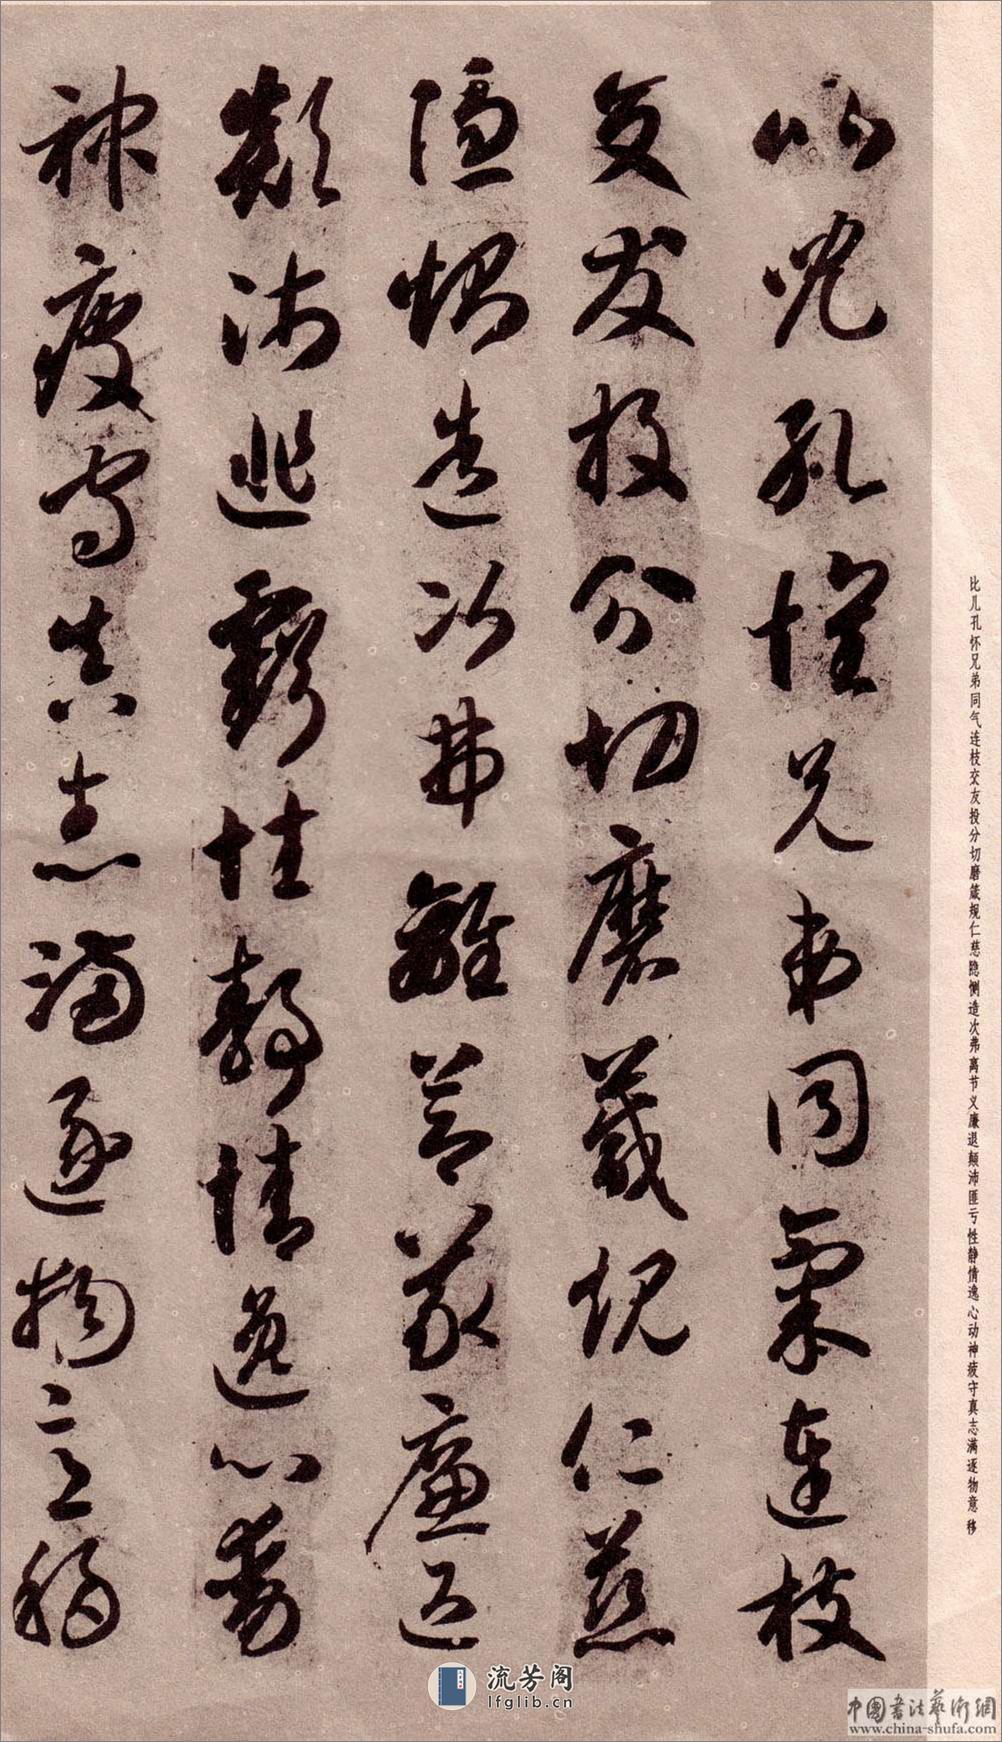 比兒孔懷兄弟同氣連枝
交友投分切磨箴規仁慈
隱惻造次弗離節義廉退
顛沛匪虧性靜情逸心動
神疲守真志滿逐物意移
比儿孔怀兄弟同气连枝交友投分切磨箴规仁慈隐恻造次弗离节义廉退颠沛匪亏性静情逸心动神疲守真志满逐物意移
流芳阁
lfglib.cn
中国书法艺术網
www.china-shufa.com